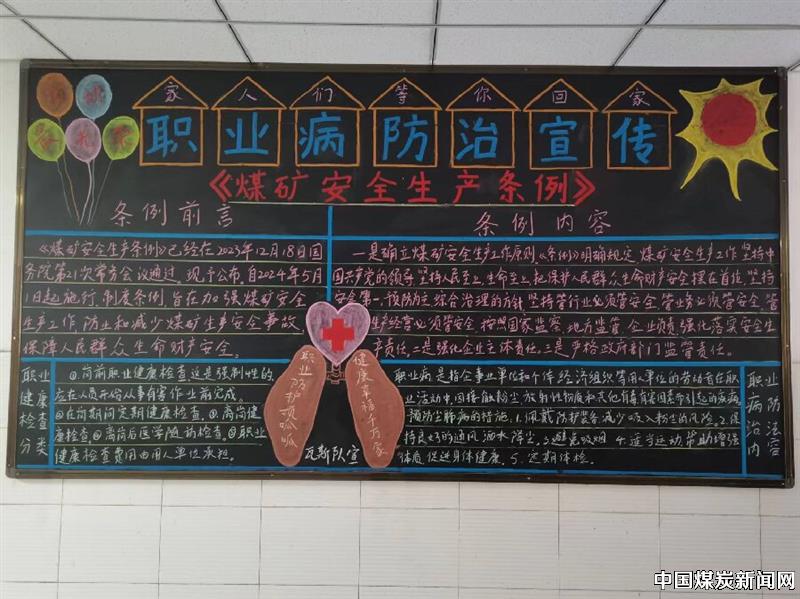 家人们等你回家
职业病防治宣传
《煤矿安全生产条例》
条例前言
《煤矿安全生产条例》已经在2023年12月18日国
务院第21次常务会议通过,现予公布,自2024年5月
1日起施行,制度条例,旨在加强煤矿安全
生产工作,防止和减少煤矿生产安全事故,
保障人民群众生命财产安全。
条例内容
一是确立煤矿安全生产工作原则《条例》明确规定,煤矿安全生产工作坚持中
国共产党的领导,坚持人民至上,生命至上,把保护人民群众生命财产安全摆在首位,坚持
安全第一,预防为主,综合治理的方针,坚持管行业必须管安全,管业务必须管安全,管
生产经营必须管安全,按照国家监察,地方监管,企业负责,强化落实安全生
产责任。二是强化企业主体责任。三是严格政府部门监管责任。
职业健康检查分类
①岗前职业健康检查,这是强制性的,
应在人员开始从事有害作业前完成。
②在岗期间定期健康检查。③离岗健
康检查。④离岗后医学随访检查。⑤职业
健康检查费用由用人单位承担。
职业防护顶呱呱
健康幸福千万家
瓦斯队宣
职业病是指企事业单位和个体经济组织等用人单位的劳动者在职
业活动中,因接触粉尘,放射性物质和其他有毒有害因素引起的疾病。
预防尘肺病的措施:1.佩戴防护装备,减少吸入粉尘的风险。2.保
持良好的通风,洒水降尘。3.避免吸烟 4.适当运动,帮助增强
体质,促进身体健康。5.定期体检。
职业病防治
防法内容
中国煤炭新闻网